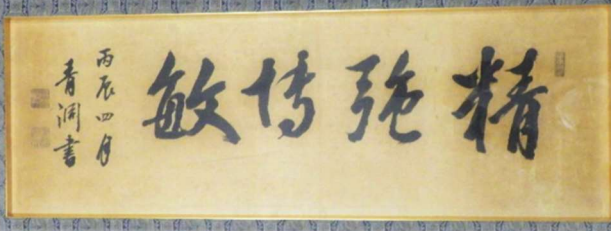 精強博敏
丙辰四月
青淵書